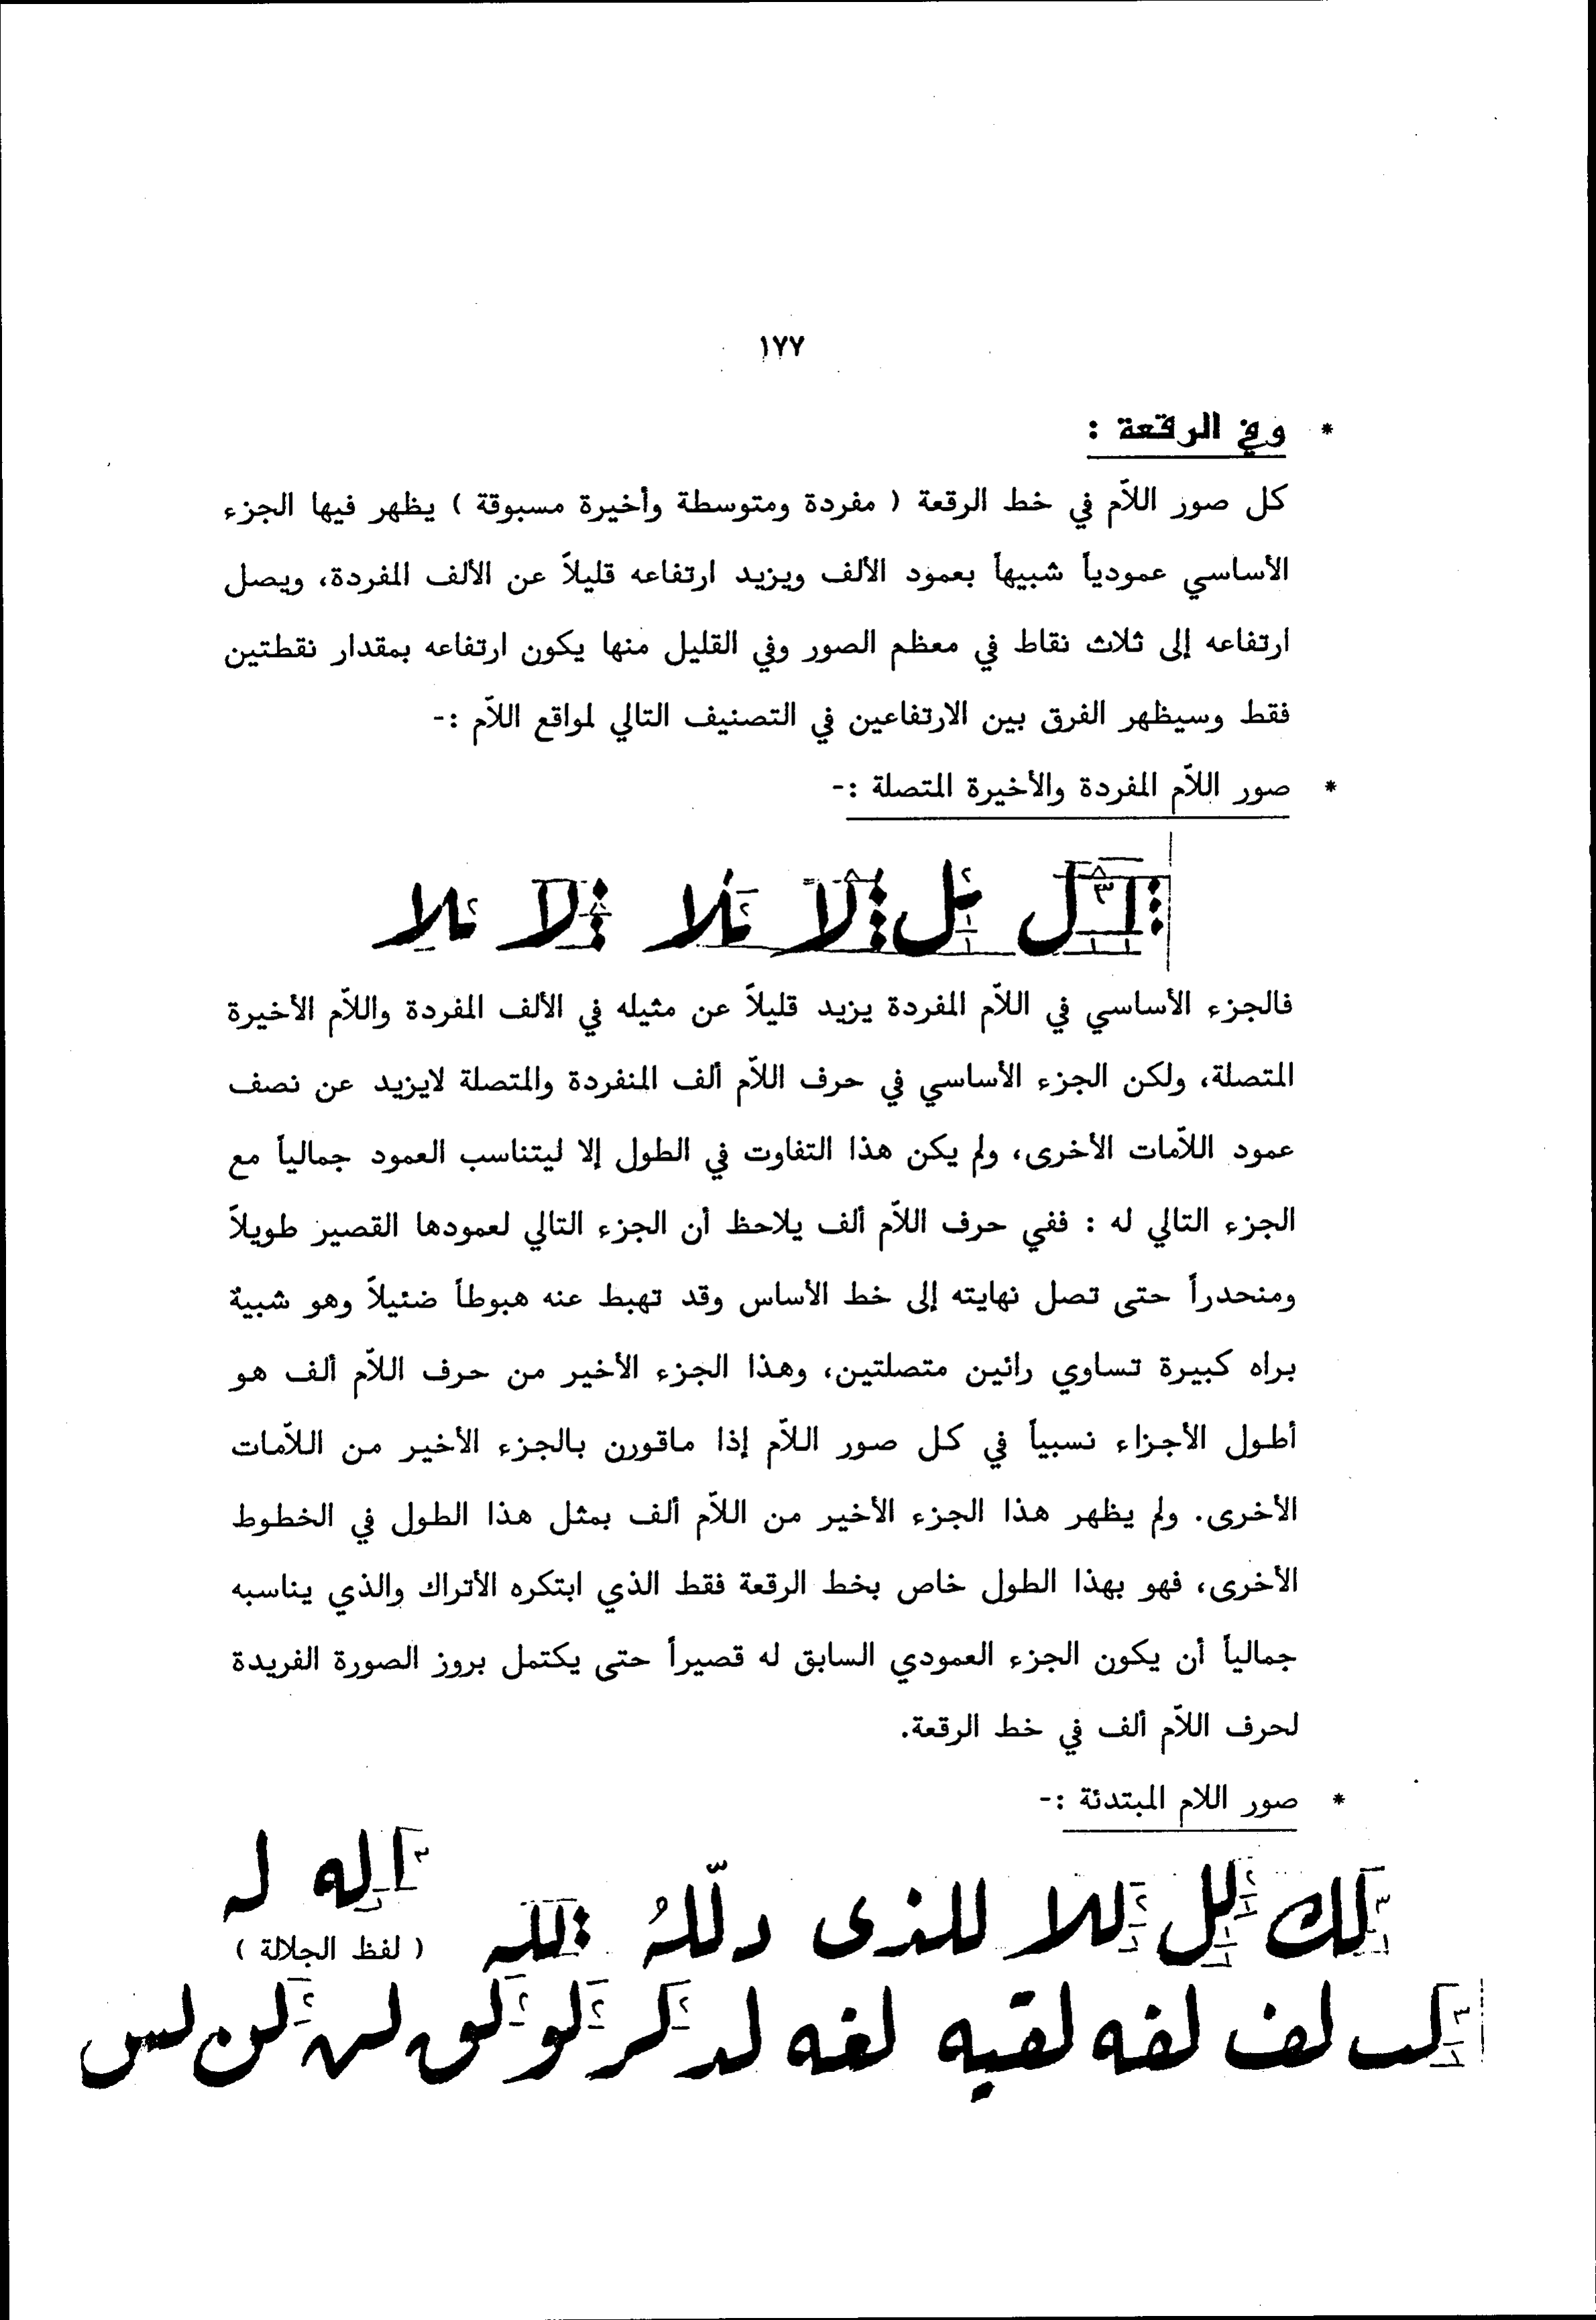 ١٧٧
* وفي الرقعة :
كل صور اللاّم في خط الرقعة ( مفردة ومتوسطة وأخيرة مسبوقة ) يظهر فيها الجزء
الأساسي عمودياً شبيهاً بعمود الألف ويزيد ارتفاعه قليلاً عن الألف المفردة، ويصل
ارتفاعه إلى ثلاث نقاط في معظم الصور وفي القليل منها يكون ارتفاعه بمقدار نقطتين
فقط وسيظهر الفرق بين الارتفاعين في التصنيف التالي لمواقع اللاّم :-
* صور اللاّم المفردة والأخيرة المتصلة :-
ا ل لا لا
فالجزء الأساسي في اللاّم المفردة يزيد قليلاً عن مثيله في الألف المفردة واللاّم الأخيرة
المتصلة، ولكن الجزء الأساسي في حرف اللاّم ألف المنفردة والمتصلة لايزيد عن نصف
عمود اللاّمات الأخرى، ولم يكن هذا التفاوت في الطول إلا ليتناسب العمود جمالياً مع
الجزء التالي له : ففي حرف اللاّم ألف يلاحظ أن الجزء التالي لعمودها القصير طويلاً
ومنحدراً حتى تصل نهايته إلى خط الأساس وقد تهبط عنه هبوطاً ضئيلاً وهو شبية
براه كبيرة تساوي رائين متصلتين، وهذا الجزء الأخير من حرف اللاّم ألف هو
أطول الأجزاء نسبياً في كل صور اللاّم إذا ماقورن بالجزء الأخير من اللاّمات
الأخرى. ولم يظهر هذا الجزء الأخير من اللاّم ألف بمثل هذا الطول في الخطوط
الأخرى، فهو بهذا الطول خاص بخط الرقعة فقط الذي ابتكره الأتراك والذي يناسبه
جمالياً أن يكون الجزء العمودي السابق له قصيراً حتى يكتمل بروز الصورة الفريدة
لحرف اللاّم ألف في خط الرقعة.
* صور اللام المبتدئة :-
لك للا للذى دلّلهُ لله اله لـه
( لفظ الجلالة )
لب لف لفه لقيه لغه لد لر لو لق لن لس